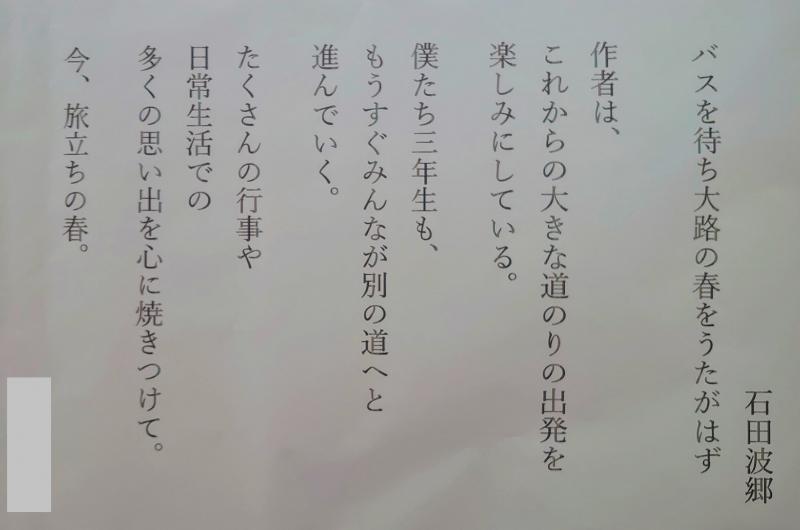 石田波郷
バスを待ち大路の春をうたがはず
作者は、
これからの大きな道のりの出発を
楽しみにしている。
僕たち三年生も、
もうすぐみんなが別の道へと
進んでいく。
たくさんの行事や
日常生活での
多くの思い出を心に焼きつけて。
今、旅立ちの春。